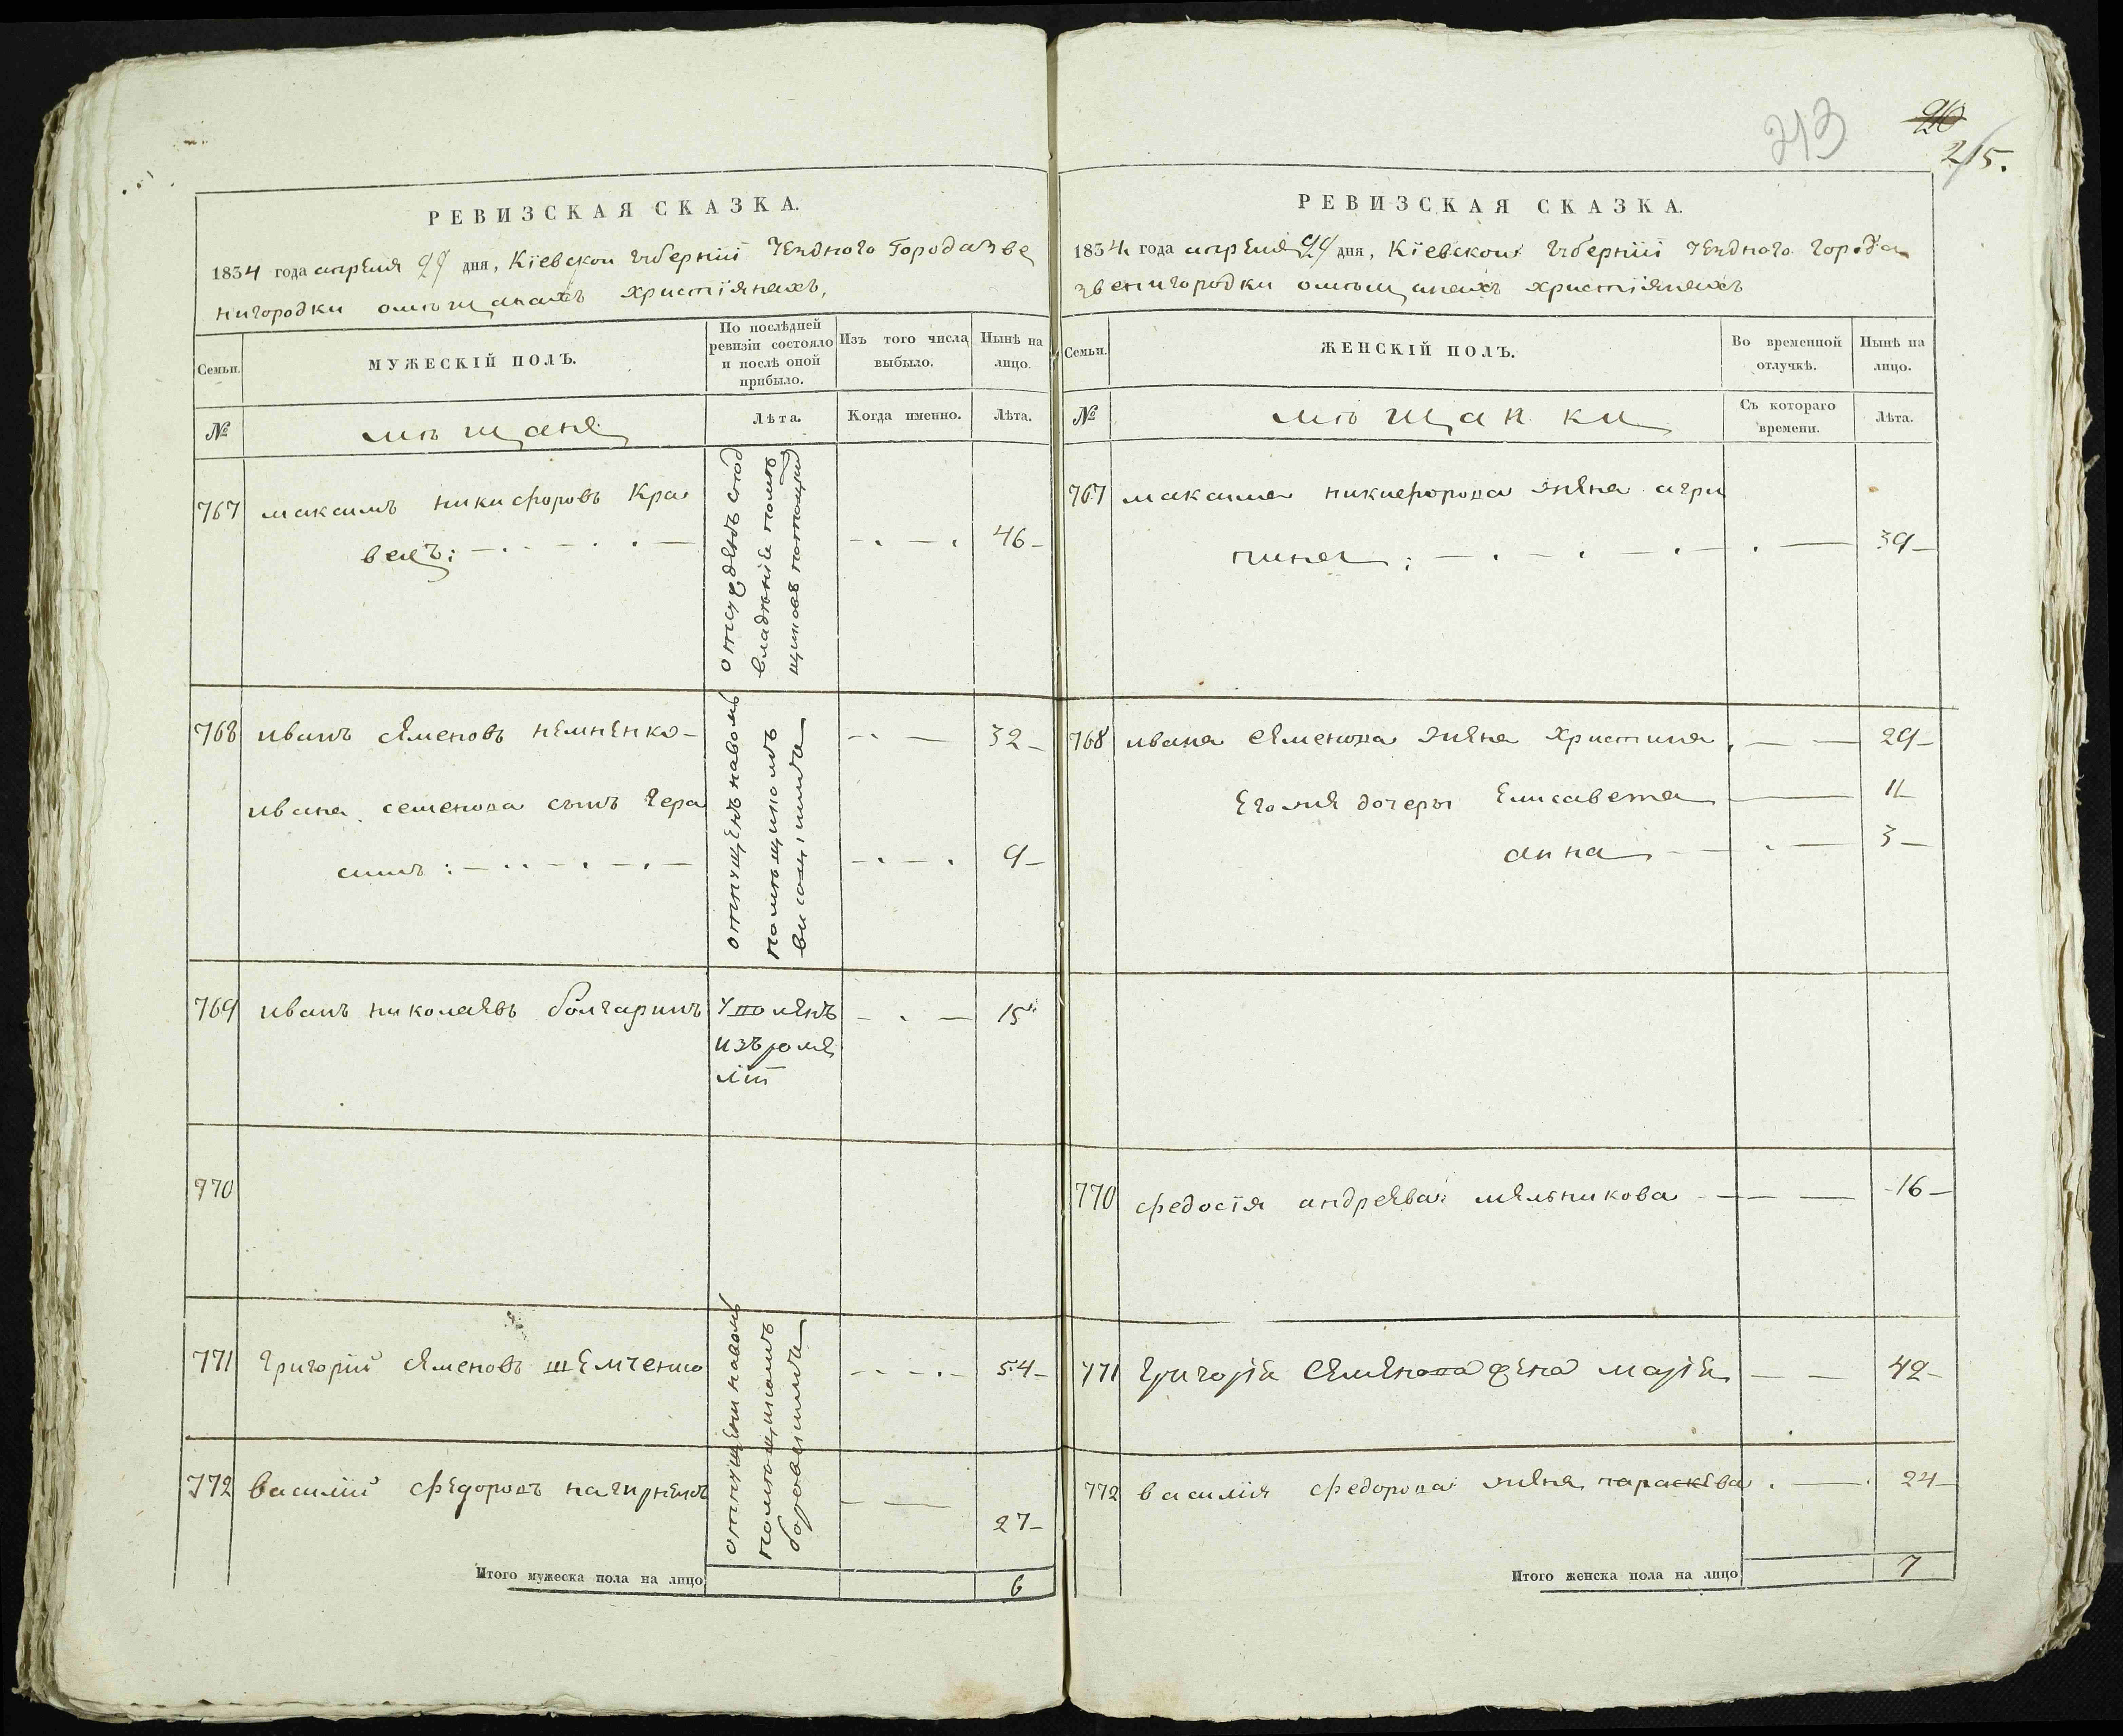 РЕВИЗСКАЯ СКАЗКА.
1834 года апреля 29 дня, Кіевскои губерніи уездного Города Зве
нигородки омѣщанахъ христіянахъ,
Семьи. МУЖЕСКІЙ ПОЛЪ. По послѣдней ревизіи состояло и послѣ оной прибыло. Изъ того числа выбыло. Нынѣ на лицо.
№ мѣщане Лѣта. Когда именно. Лѣта.
767 максимъ никифоровъ Кра
вецъ: 46
владѣніе помѣ
щиковъ
768 иванъ семеновъ немненко 32
ивана семенова сынъ гера
симъ: 9
отпущенъ
помѣщикомъ
769 иванъ николаевъ болгаринъ 15
изъ
770
771 григорій семеновъ шемченко 54
772 василій федоровъ нагирнекъ 27
отпущени
помѣщикомъ
Итого мужеска пола на лицо 6
213
215.
РЕВИЗСКАЯ СКАЗКА.
1834 года апреля 29 дня, Кіевскои губерніи уездного города
звенигородки омѣщанахъ христіянахъ
Семьи. ЖЕНСКІЙ ПОЛЪ. Во временной отлучкѣ. Нынѣ на лицо.
№ мѣщанки Съ котораго времени. Лѣта.
767 максима никифорова жена агри
пина: 39
768 ивана семенова жена христина 29
Его же дочеры Елисавета 11
анна 3
770 федосія андреева мельникова 16
771 григорія семенова жена марія 42
772 василія федорова жена параскева 24
Итого женска пола на лицо 7